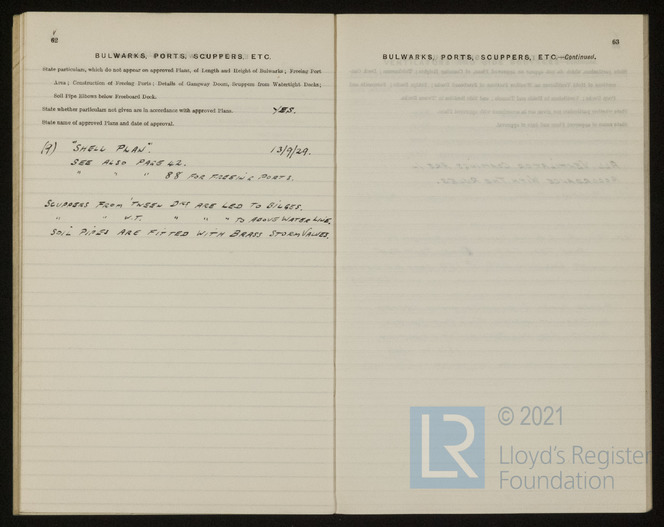 62
BULWARKS, PORTS, SCUPPERS, ETC.
State particulars, which do not appear on approved Plans, of Length and Height of Bulwarks; Freeing Port
Area; Construction of Freeing Ports; Details of Gangway Doors, Scuppers from Watertight Decks;
Soil Pipe Elbows below Freeboard Deck.
State whether particulars not given are in accordance with approved Plans. YES.
State name of approved Plans and date of approval.
(9) "SHELL PLAN". 13/9/29.
SEE ALSO PAGE 42.
" " " 88 FOR FREEING PORTS.
SCUPPERS FROM 'TWEEN DKS ARE LED TO BILGES.
" " W.T. " " " TO ABOVE WATER LINE.
SOIL PIPES ARE FITTED WITH BRASS STORM VALVES.
63
BULWARKS, PORTS, SCUPPERS, ETC.—Continued.
LR
© 2021
Lloyd's Register
Foundation